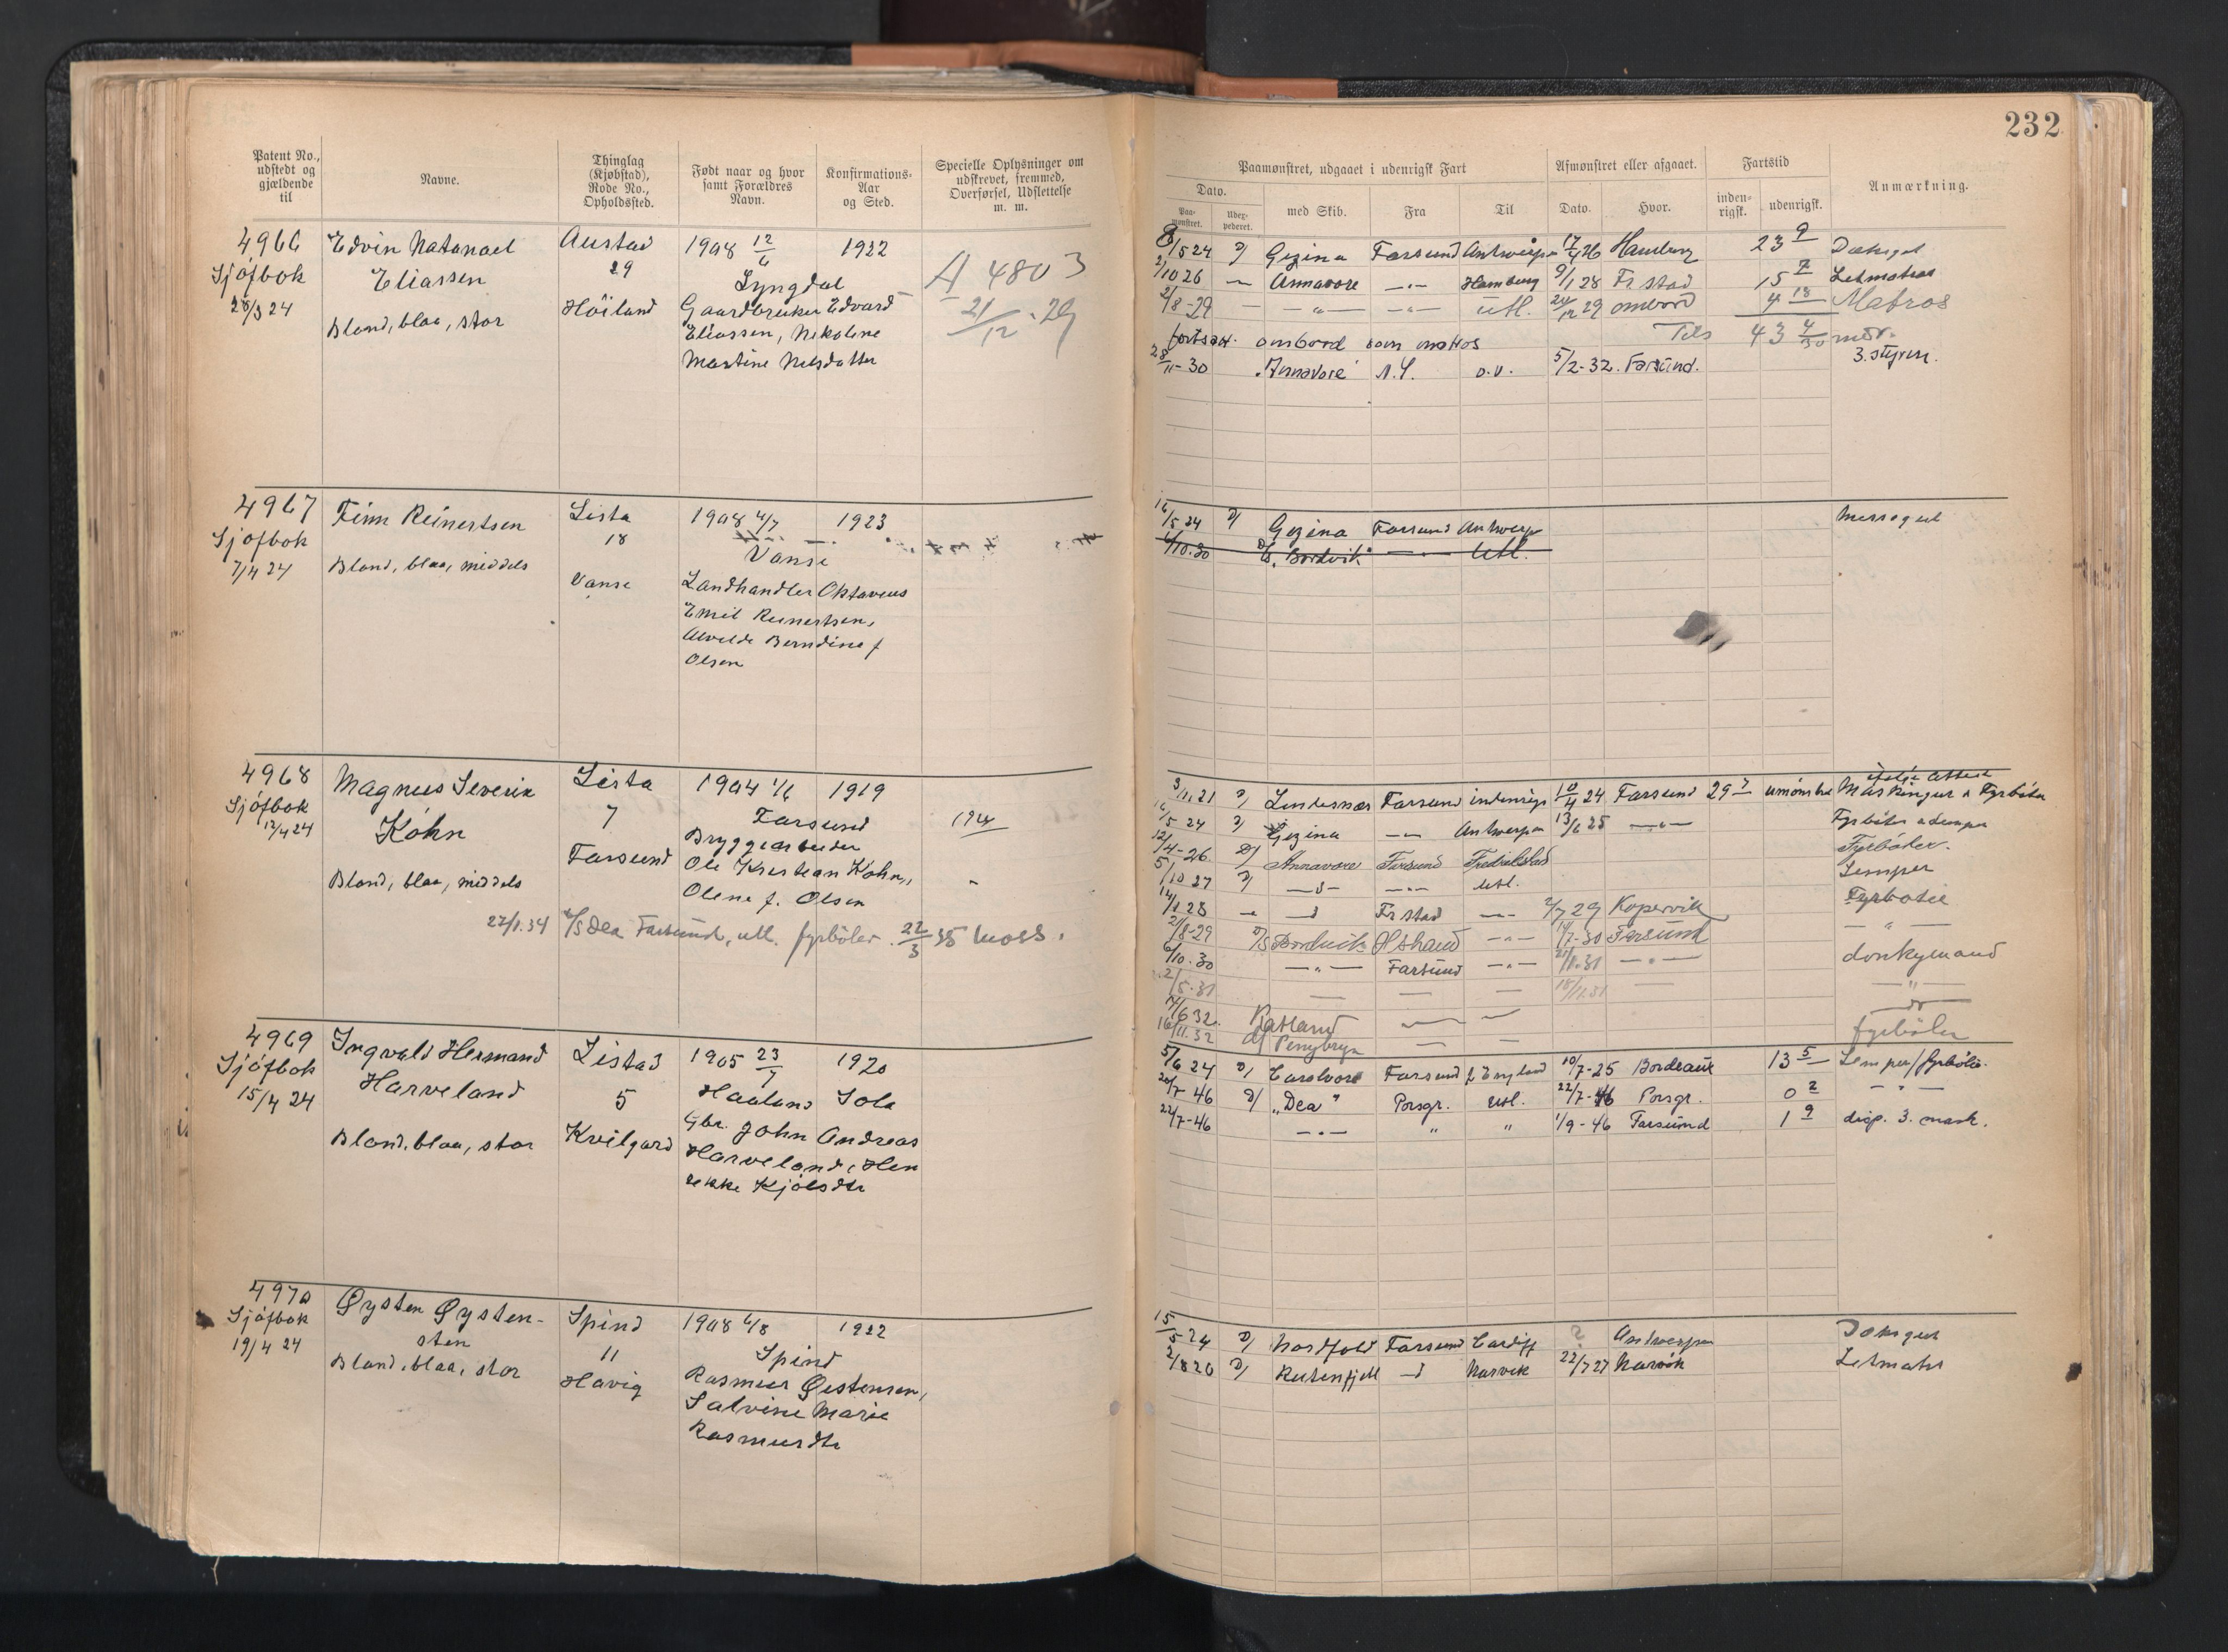 232
Patent No.,
udstedt og
gjældende
til
Navne.
Thinglag
(Kjøbstad),
Rode No.,
Opholdssted.
Født naar og hvor
samt Forældres
Navn.
Konfirmations-
Aar
og Sted.
Specielle Oplysninger om
udskrevet, fremmed,
Overførsel, Udslettelse
m. m.
Paamønstret, udgaaet i udenrigsk Fart
Afmønstret eller afgaaet.
Fartstid
Anmærkning.
Dato.
Paa-
mønstret.
Udex-
pederet.
med Skib.
Fra
Til
Dato.
Hvor.
inden-
rigsk.
udenrigsk.
4966
Sjøfbok
28/3 24
Edvin Natanael
Eliassen
Blond, blaa, stor
Austad
29
Höiland
1908 12/6
1922
Lyngdal
Gaardbruker Edvard
Eliassen, Nikoline
Martine Nilsdatter
A 4803
21/12 - 29
8/5 24 D/ Gezina Farsund Antwerpen 17/4 26 Hamburg 23 9 Dæksgut
2/10 26 — Annavore —"— Hamburg 9/1 28 Fr.stad 15 7 Letmatros
2/8-29 — —"— —"— utl. 24/12 29 ombord 4 18 Matros
fortsat ombord som matros Tils 43 4/30 mdr.
28/11-30 "Annavore" N.Y. o.v. 5/2-32. Farsund. 3. styrm.
4967
Sjøfbok
7/4 24
Finn Reinertsen
Blond, blaa, middels
Lista
18
Vanse
1908 4/7
1923
Vanse
Landhandler Oktavius
Emil Reinertsen,
Alvilde Berndine f
Olsen
16/5 24 D/ Gezina Farsund Antwerpen Messegut
6/10.30 D/S "Bordvik" —"— Utl.
4968
Sjøfbok
12/4 24
Magnus Severin
Kohn
Blond, blaa, middels
Lista
7
Farsund
1904 1/6
1919
Farsund
Bryggearbeider
Ole Kristian Kohn,
Olene f. Olsen
1924
27/1.34 D/S Dea Farsund, utl. fyrböter. 22/3 35 Moss.
3/11 21 D/ Lindesnæs Farsund indenrigs 10/4 24 Farsund 29 7 umönstre
ifölge Attest
Maskingut & Fyrböter
16/5 24 D/ Gezina —"— Antwerpen 13/6 25 —"— Fyrböter
12/4-26. D/ Annavore Farsund Fredrikstad Fyrböter.
5/10 27 D/ —d— —"— Utl. Lemper
14/1 28 — —d Fr stad —"— 2/7 29 Kopervik Fyrböter
2/8-29 D/S Bordvik —"— 14/7-30 Farsund —"—
6/10.30 —"— Farsund —"— 21/1.31 —"— donkymand
2/5-31 — — — 18/12.31 — —"—
14/6 32.
16/11.32 D/ Penybryn — — fyrböter
4969
Sjøfbok
15/4 24
Ingvald Hermand
Harveland
Blond, blaa, stor
Listad
5
Kvilgard
1905 23/7
1920
Haaland Sola
Gbr. John Andreas
Harveland, Hen
rikke Kjölsdtr
5/6 24 D/ Carolvore Farsund f England 10/7-25 Bordeaux 13 5 Lemper/fyrböter.
20/7 46 D/ "Dea" Porsgr. Utl. 22/7-46 Porsgr. 0 2 —"—
22/7-46 —"— " " 1/9-46 Farsund 1 9 disp. 3. mask.
4970
Sjøfbok
19/4 24
Øysten Øysten-
sten
Blond, blaa, stor
Spind
11
Havig
1908 4/8
1922
Spind
Rasmus Øistensen,
Salvine Marie
Rasmusdtr
15/5 24 D/ Nordfold Farsund Cardiff ? Antwerpen Dæksgut
2/8 26 D/ Rutenfjell —d Narvik 22/7 27 Narvik Letmatr